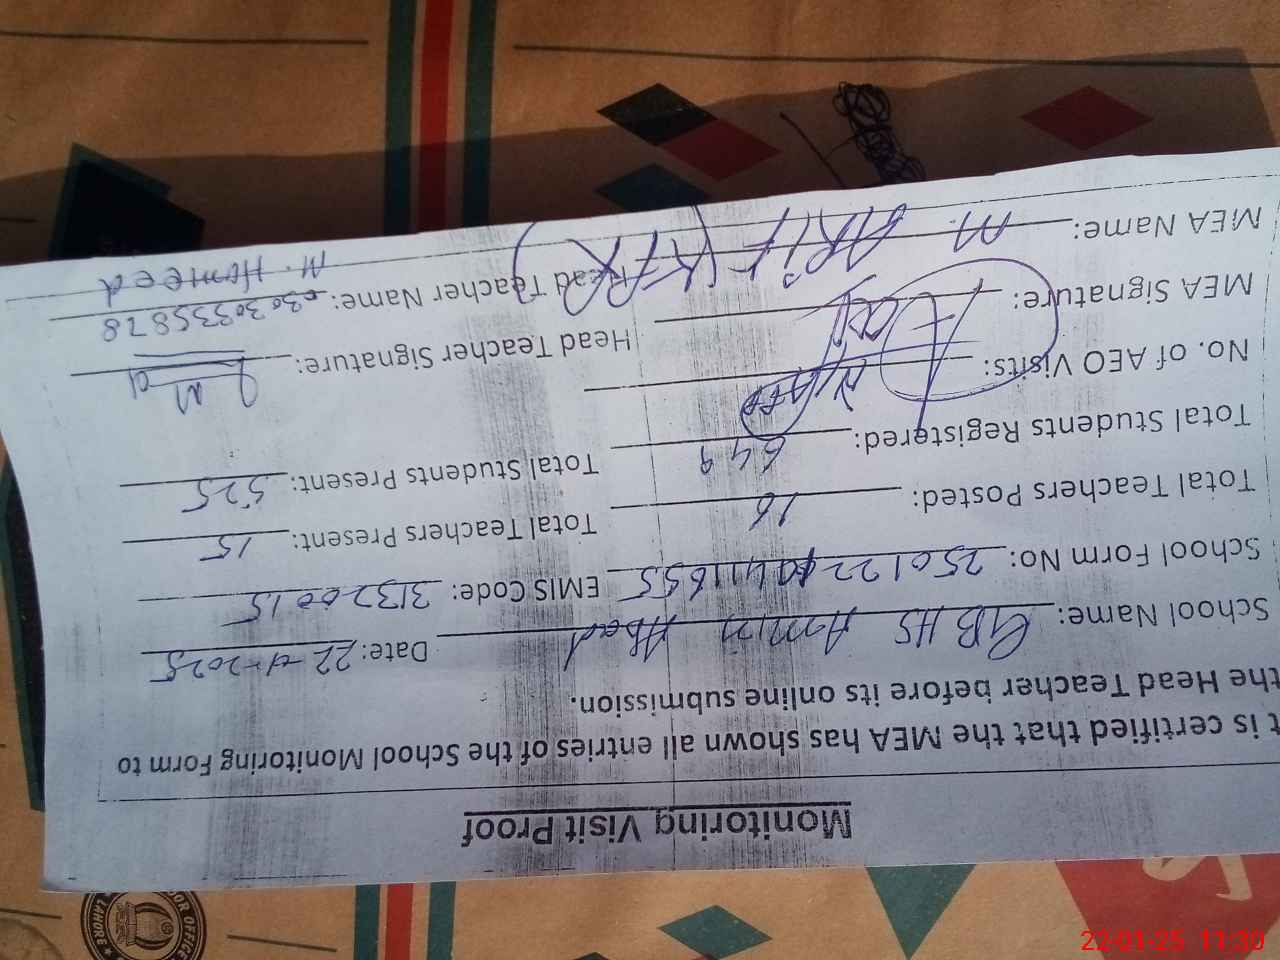 Monitoring Visit Proof
t is certified that the MEA has shown all entries of the School Monitoring Form to
the Head Teacher before its online submission.
School Name: GBHS Amin Abad Date: 22-1-2025
School Form No: EMIS Code: 31320015
Total Teachers Posted: 16 Total Teachers Present: 15
Total Students Registered: 649 Total Students Present: 525
No. of AEO Visits:
MEA Signature: Head Teacher Signature:
MEA Name: M. ARif Head Teacher Name: M. Hameed
03030335878
LAHORE
22-01-25 11:30